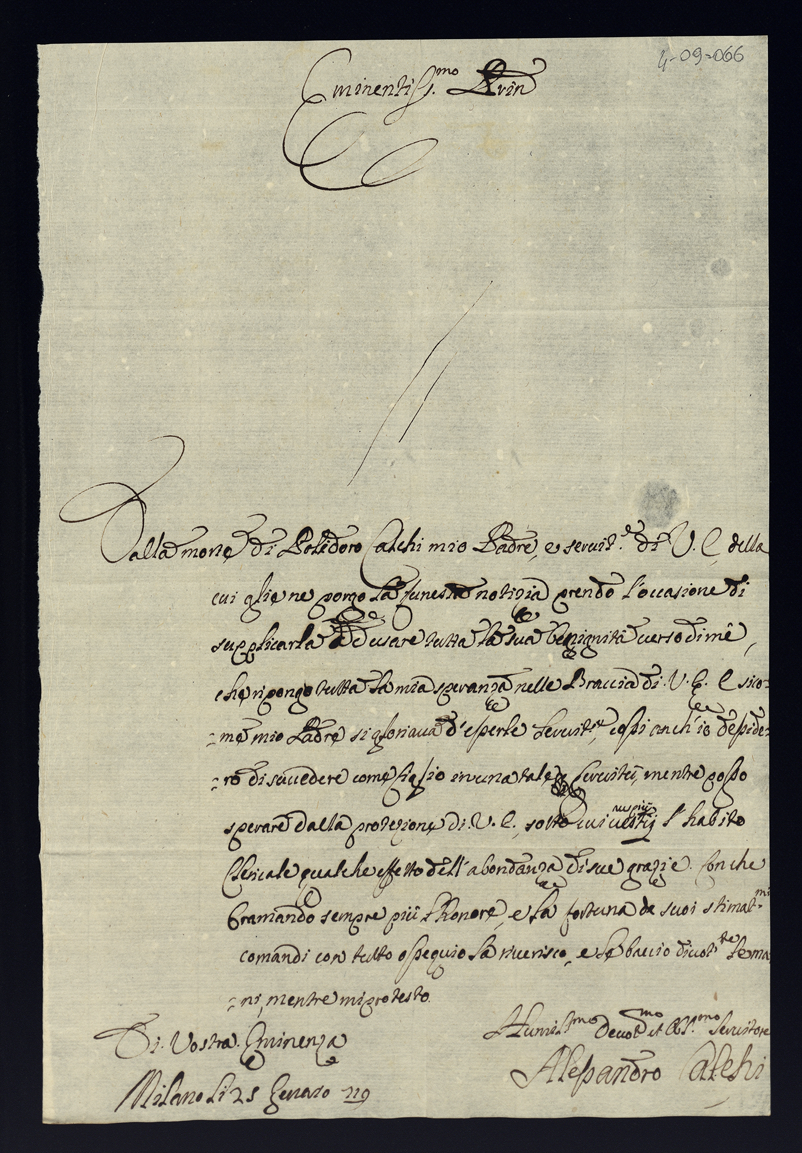 4-09-066
Eminentiss.mo Prin
Dalla morte di Polidoro Calchi mio Padre, e seruit.e di V. E. della
cui gliene porgo la funesta notizia prendo l'occasione di
supplicarla ad usare tutta la sua benignità verso di mè,
che ripongo tutta la mia speranza nelle Braccia di V. E. E sico=
=me mio Padre si gloriaua d'esserle Seruit.re, cossi anch'io deside=
=ro di succedere come figlio in una tale Seruitù, mentre posso
sperare dalla protezione di V. E., sotto cui auspizij
vestij l'habito
Clericale qualche effetto dell'abondanza di sue grazie. Con che
bramando sempre più l'honore, e la fortuna de suoi stimat.mi
comandi con tutto ossequio la riuerisco, e le baccio diuot.te le ma
=ni, mentre mi protesto.
Di Vostra Eminenza
Humil.mo Deuot.mo et Obl.mo Seruitore
Milano li 25 Genaro 719
Alessandro Calchi